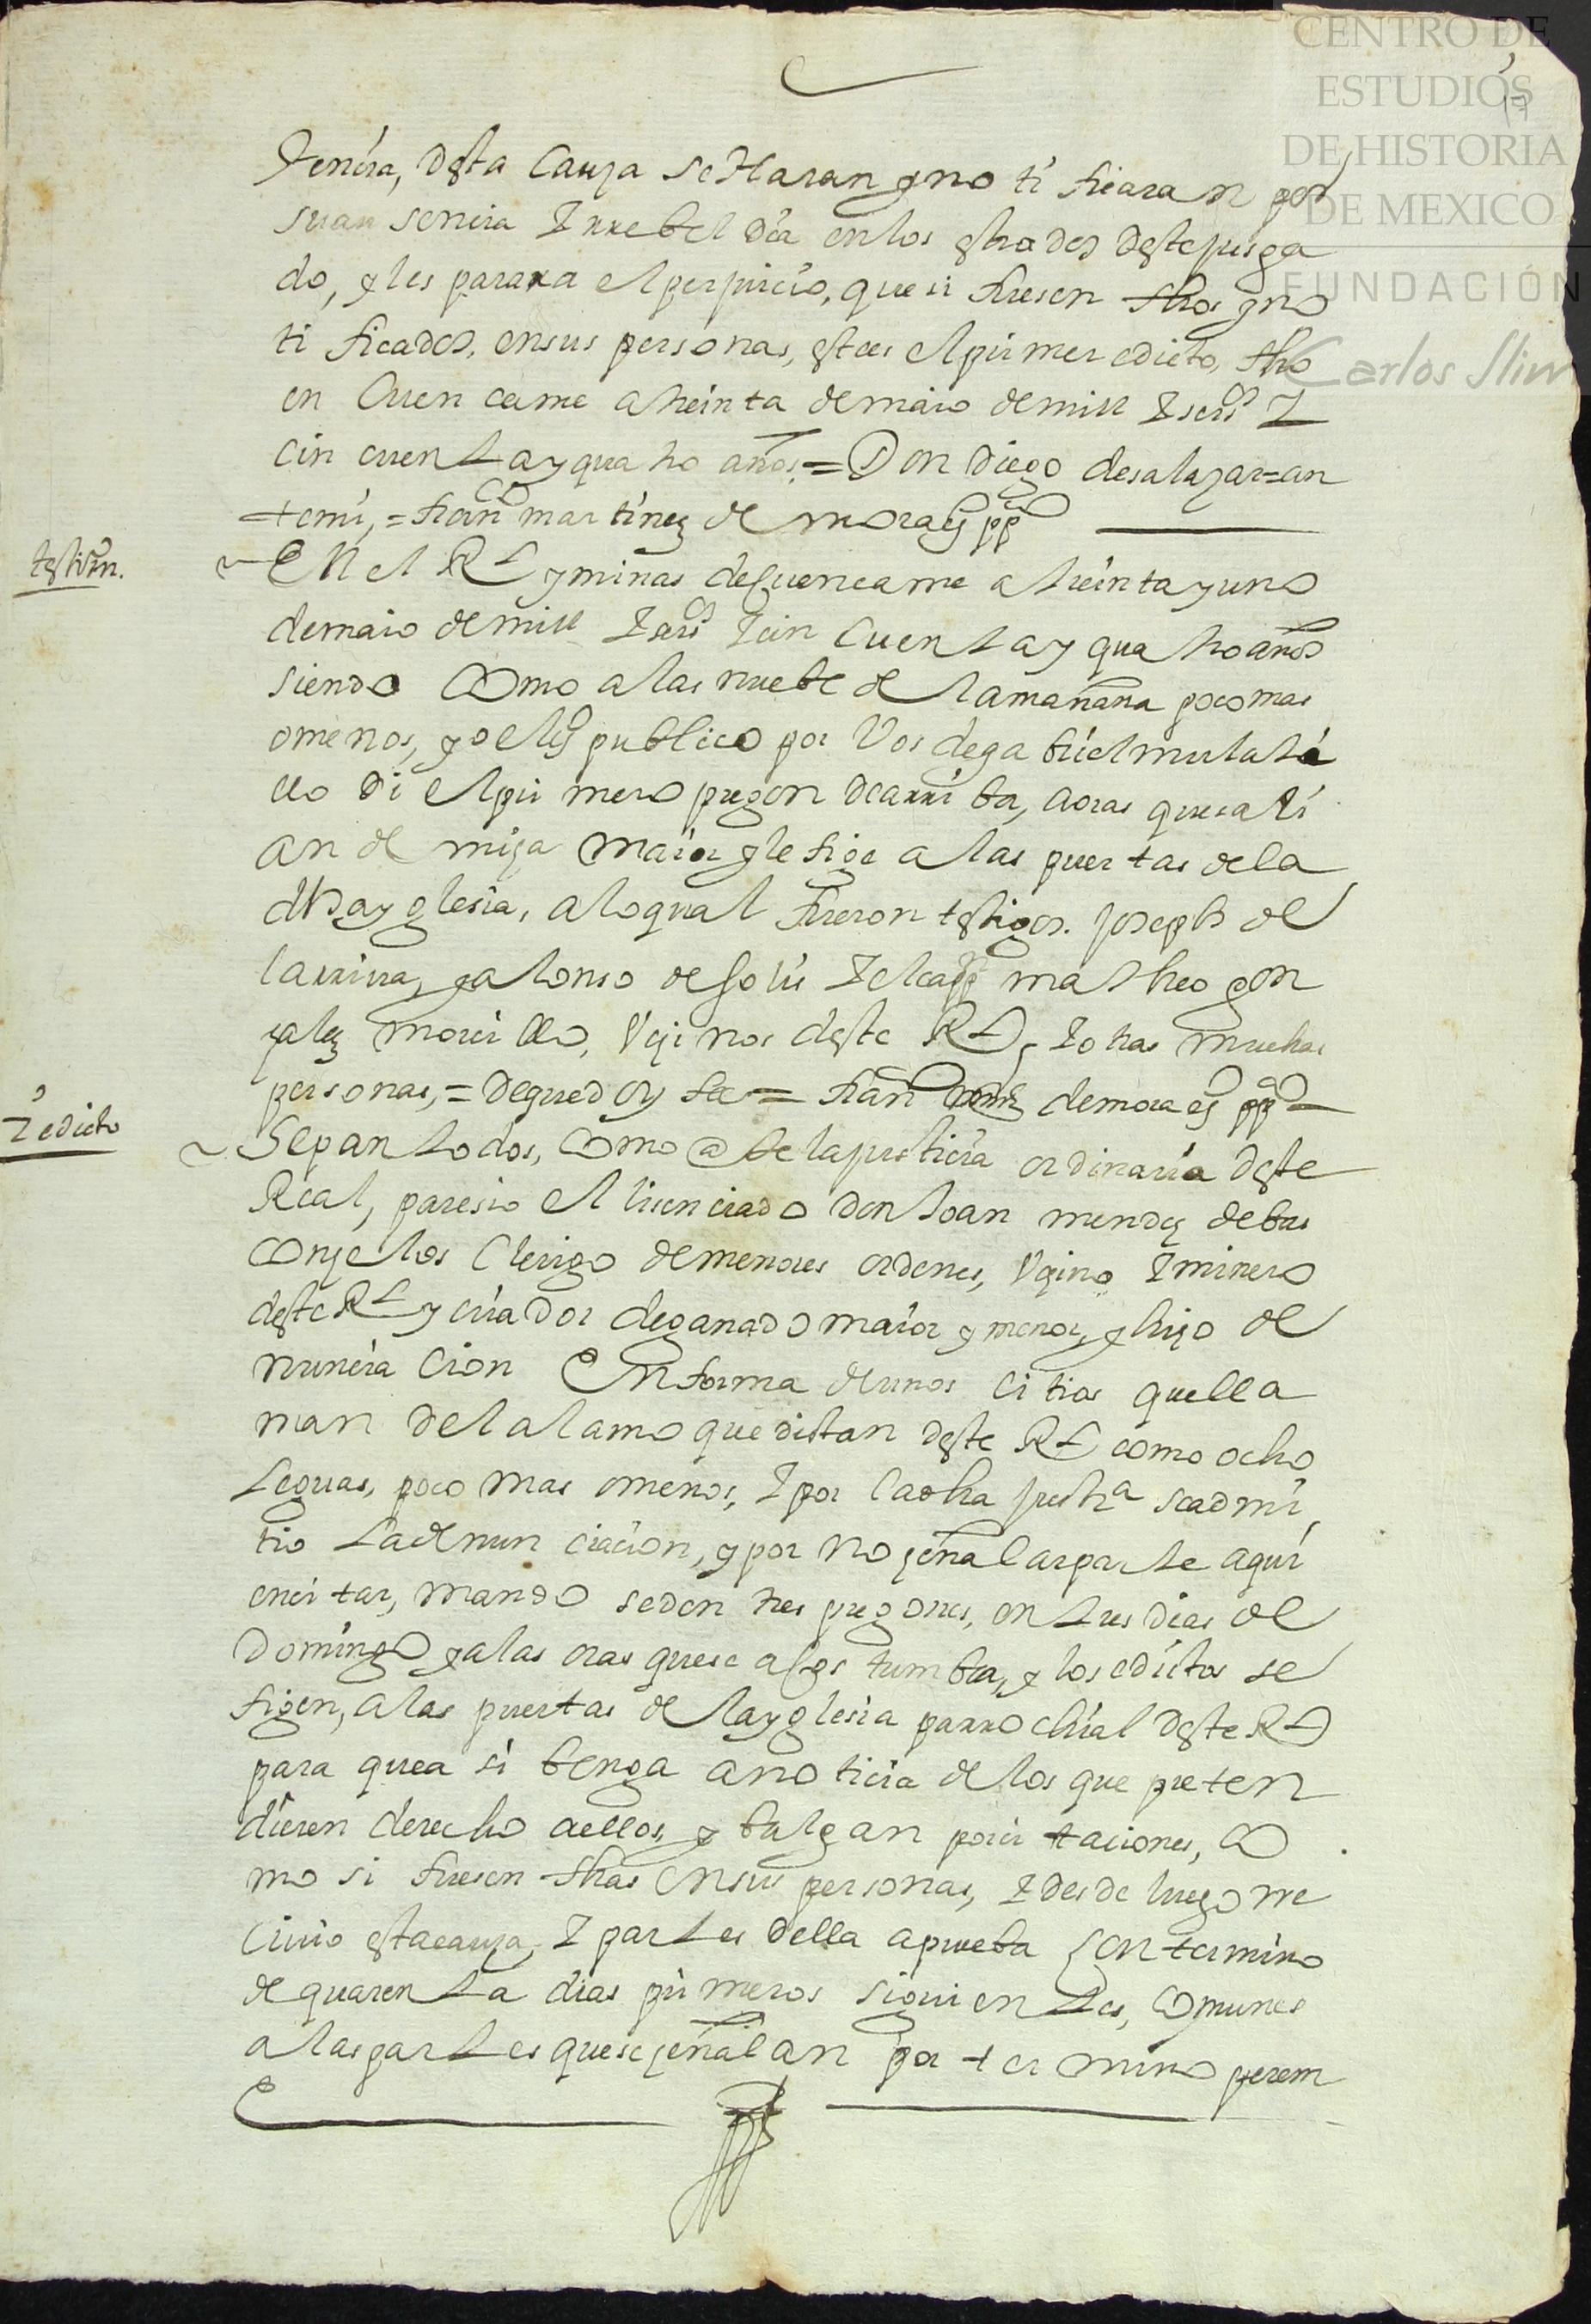 CENTRO DE
ESTUDIOS
DE HISTORIA
DE MEXICO
FUNDACIÓN
Carlos Slim
tencia, desta Cauza se Haran y no ti ficaran por
su au sencia Y rrebel dia en los estrados deste jusga
do, y les parara el perjuicio, que si fuesen fhos y no
ti ficados, en sus personas, este es el primer edicto, fho
en Cuen came a treinta de maio de mill Y seisos Y
cin cuenta y qua tro años = Don Diego de salazar = an
te mi, = fran martinez de mora es pp
testimn.
En el Rl y minas de Cuencame a treinta y uno
de maio de mill Y seis Y cin cuenta y qua tro años
siendo Como a las nuebe de la mañana poco mas
o menos, yo el es publico por Vos de ga briel mulati
llo di el pri mero pregon de arri ba, a oras que sali
an de misa maior y le fige a las puertas de la
dha yglesia, a lo qual fueron testigos. Joseph de
larriva, y alonso de Solis Y el capp matheo gon
zalez morillo, Vezinos deste Rl, Y otras muchas
personas, = de que doy fee = fran mrnz de mora es pp
2 edicto
Sepan todos, Como ante la justicia ordinaria deste
Real, paresio el lisenciado don Joan mendez de bas
Conselos Clerigo de menores ordenes, Vezino Y minero
deste Rl y criador de ganado maior y menor, y hizo de
nuncia cion En forma de unos citios que lla
man del alamo que distan deste Rl como ocho
leguas, poco mas o menos, Y por la dha justa se admi
tio la denun ciacion, y por no señalar parte a quien
citar, mando se den tres pregones, en tres dias de
Domingo y a las oras que se acos tumbra, y los edictos se
figen, a las puertas de la yglesia parrochial deste Rl
para que a si benga a noticia de los que preten
dieren derecho a ellos, y balgan por ci taciones, Co
mo si fuesen fhas En sus personas, Y desde luego rre
civio esta cauza, Y partes della a prueba Con termino
de quarenta dias primeros siguientes, Comunes
a las partes que se señalan por termino perem